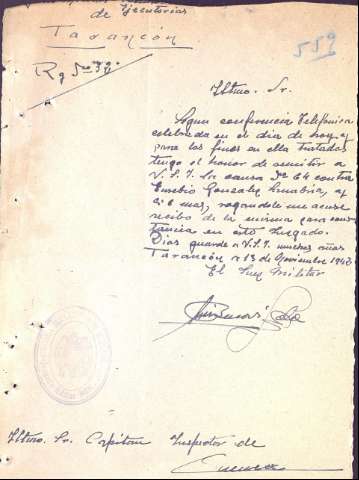 de Ejecutorias
Tarancón
559
Iltmo. Sr.
Segun conferencia telefonica
celebrada en el dia de hoy, y
para los fines en ella tratados
tengo el honor de remitir a
V.S.I. la causa nº 64 contra
Eusebio Gonzalez
6 mas, rogandole me acuse
recibo de la misma para cons-
tancia en este Juzgado.
Dios guarde a V.S.I. muchos años
Tarancón a 13 de Noviembre 194
El Juez Militar
Iltmo. Sr. Capitan Inspector de
Cuenca